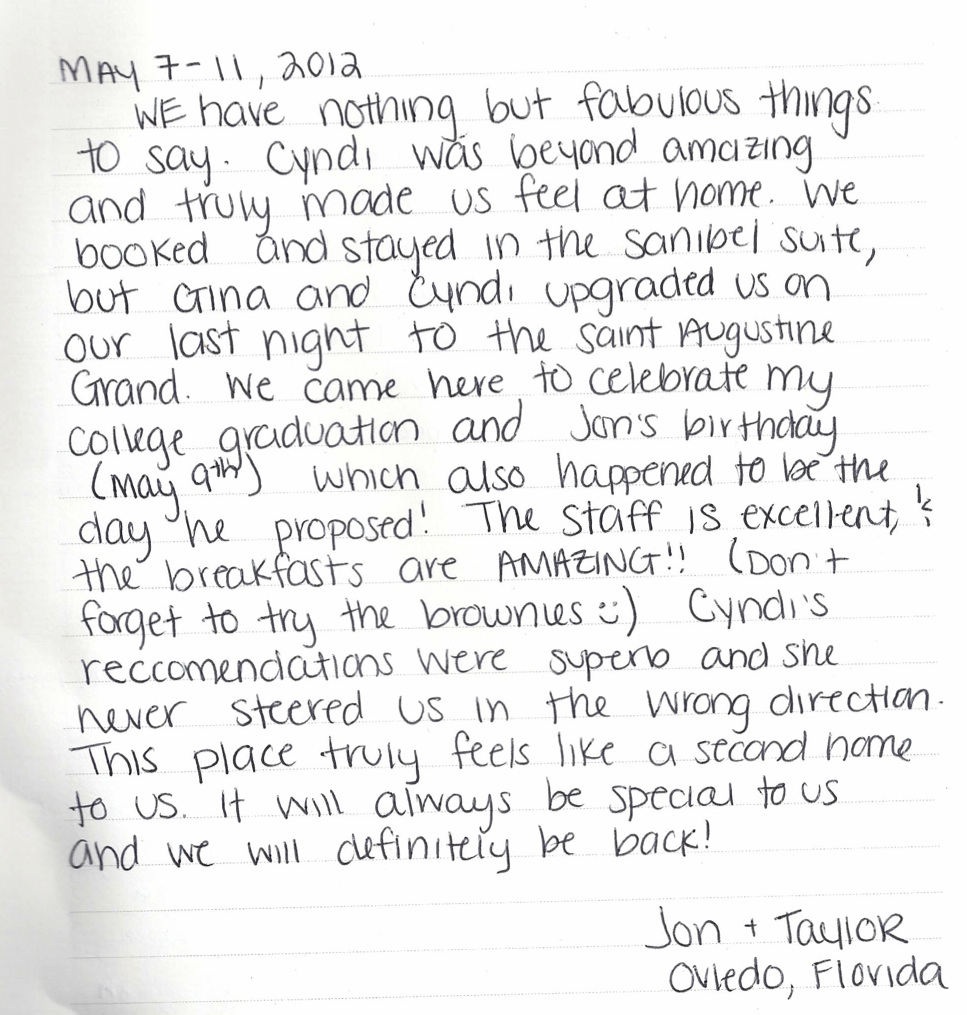 MAY 7-11, 2012
WE have nothing but fabulous things
to say. Cyndi was beyond amazing
and truly made us feel at home. We
booked and stayed in the Sanibel suite,
but Gina and Cyndi upgraded us on
our last night to the Saint Augustine
Grand. We came here to celebrate my
college graduation and Jon's birthday
(May 9th) which also happened to be the
day he proposed! The staff is excellent, &
the breakfasts are AMAZING!! (Don't
forget to try the brownies :) Cyndi's
reccomendations were superb and she
never steered us in the wrong direction.
This place truly feels like a second home
to us. It will always be special to us
and we will definitely be back!
Jon + Taylor
Oviedo, Florida